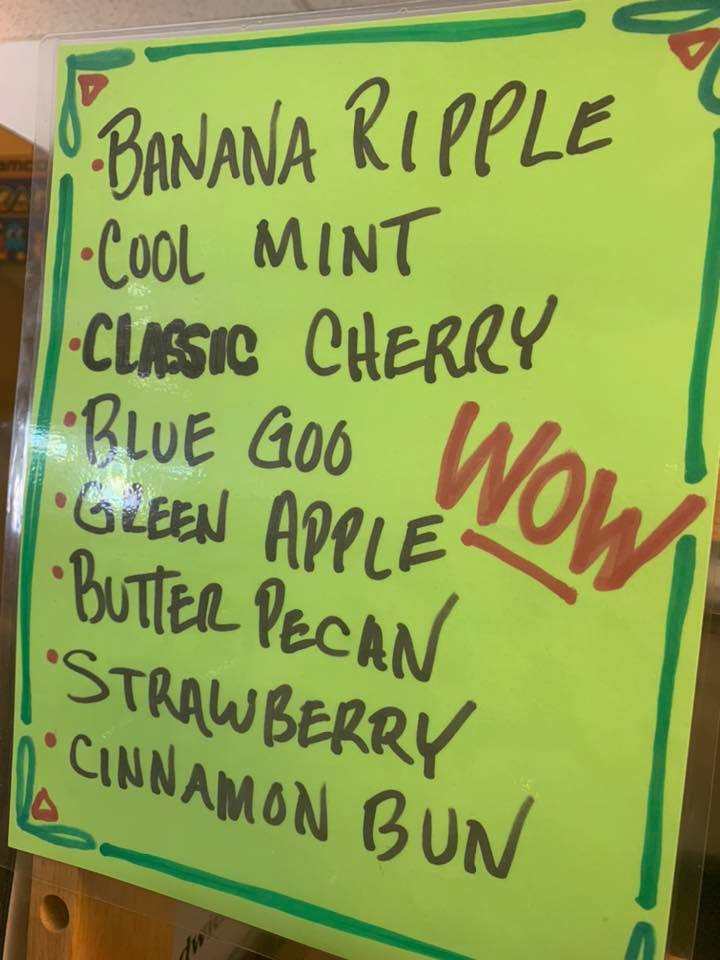 BANANA RIPPLE
COOL MINT
CLASSIC CHERRY
BLUE GOO
GREEN APPLE
WOW
BUTTER PECAN
STRAWBERRY
CINNAMON BUN